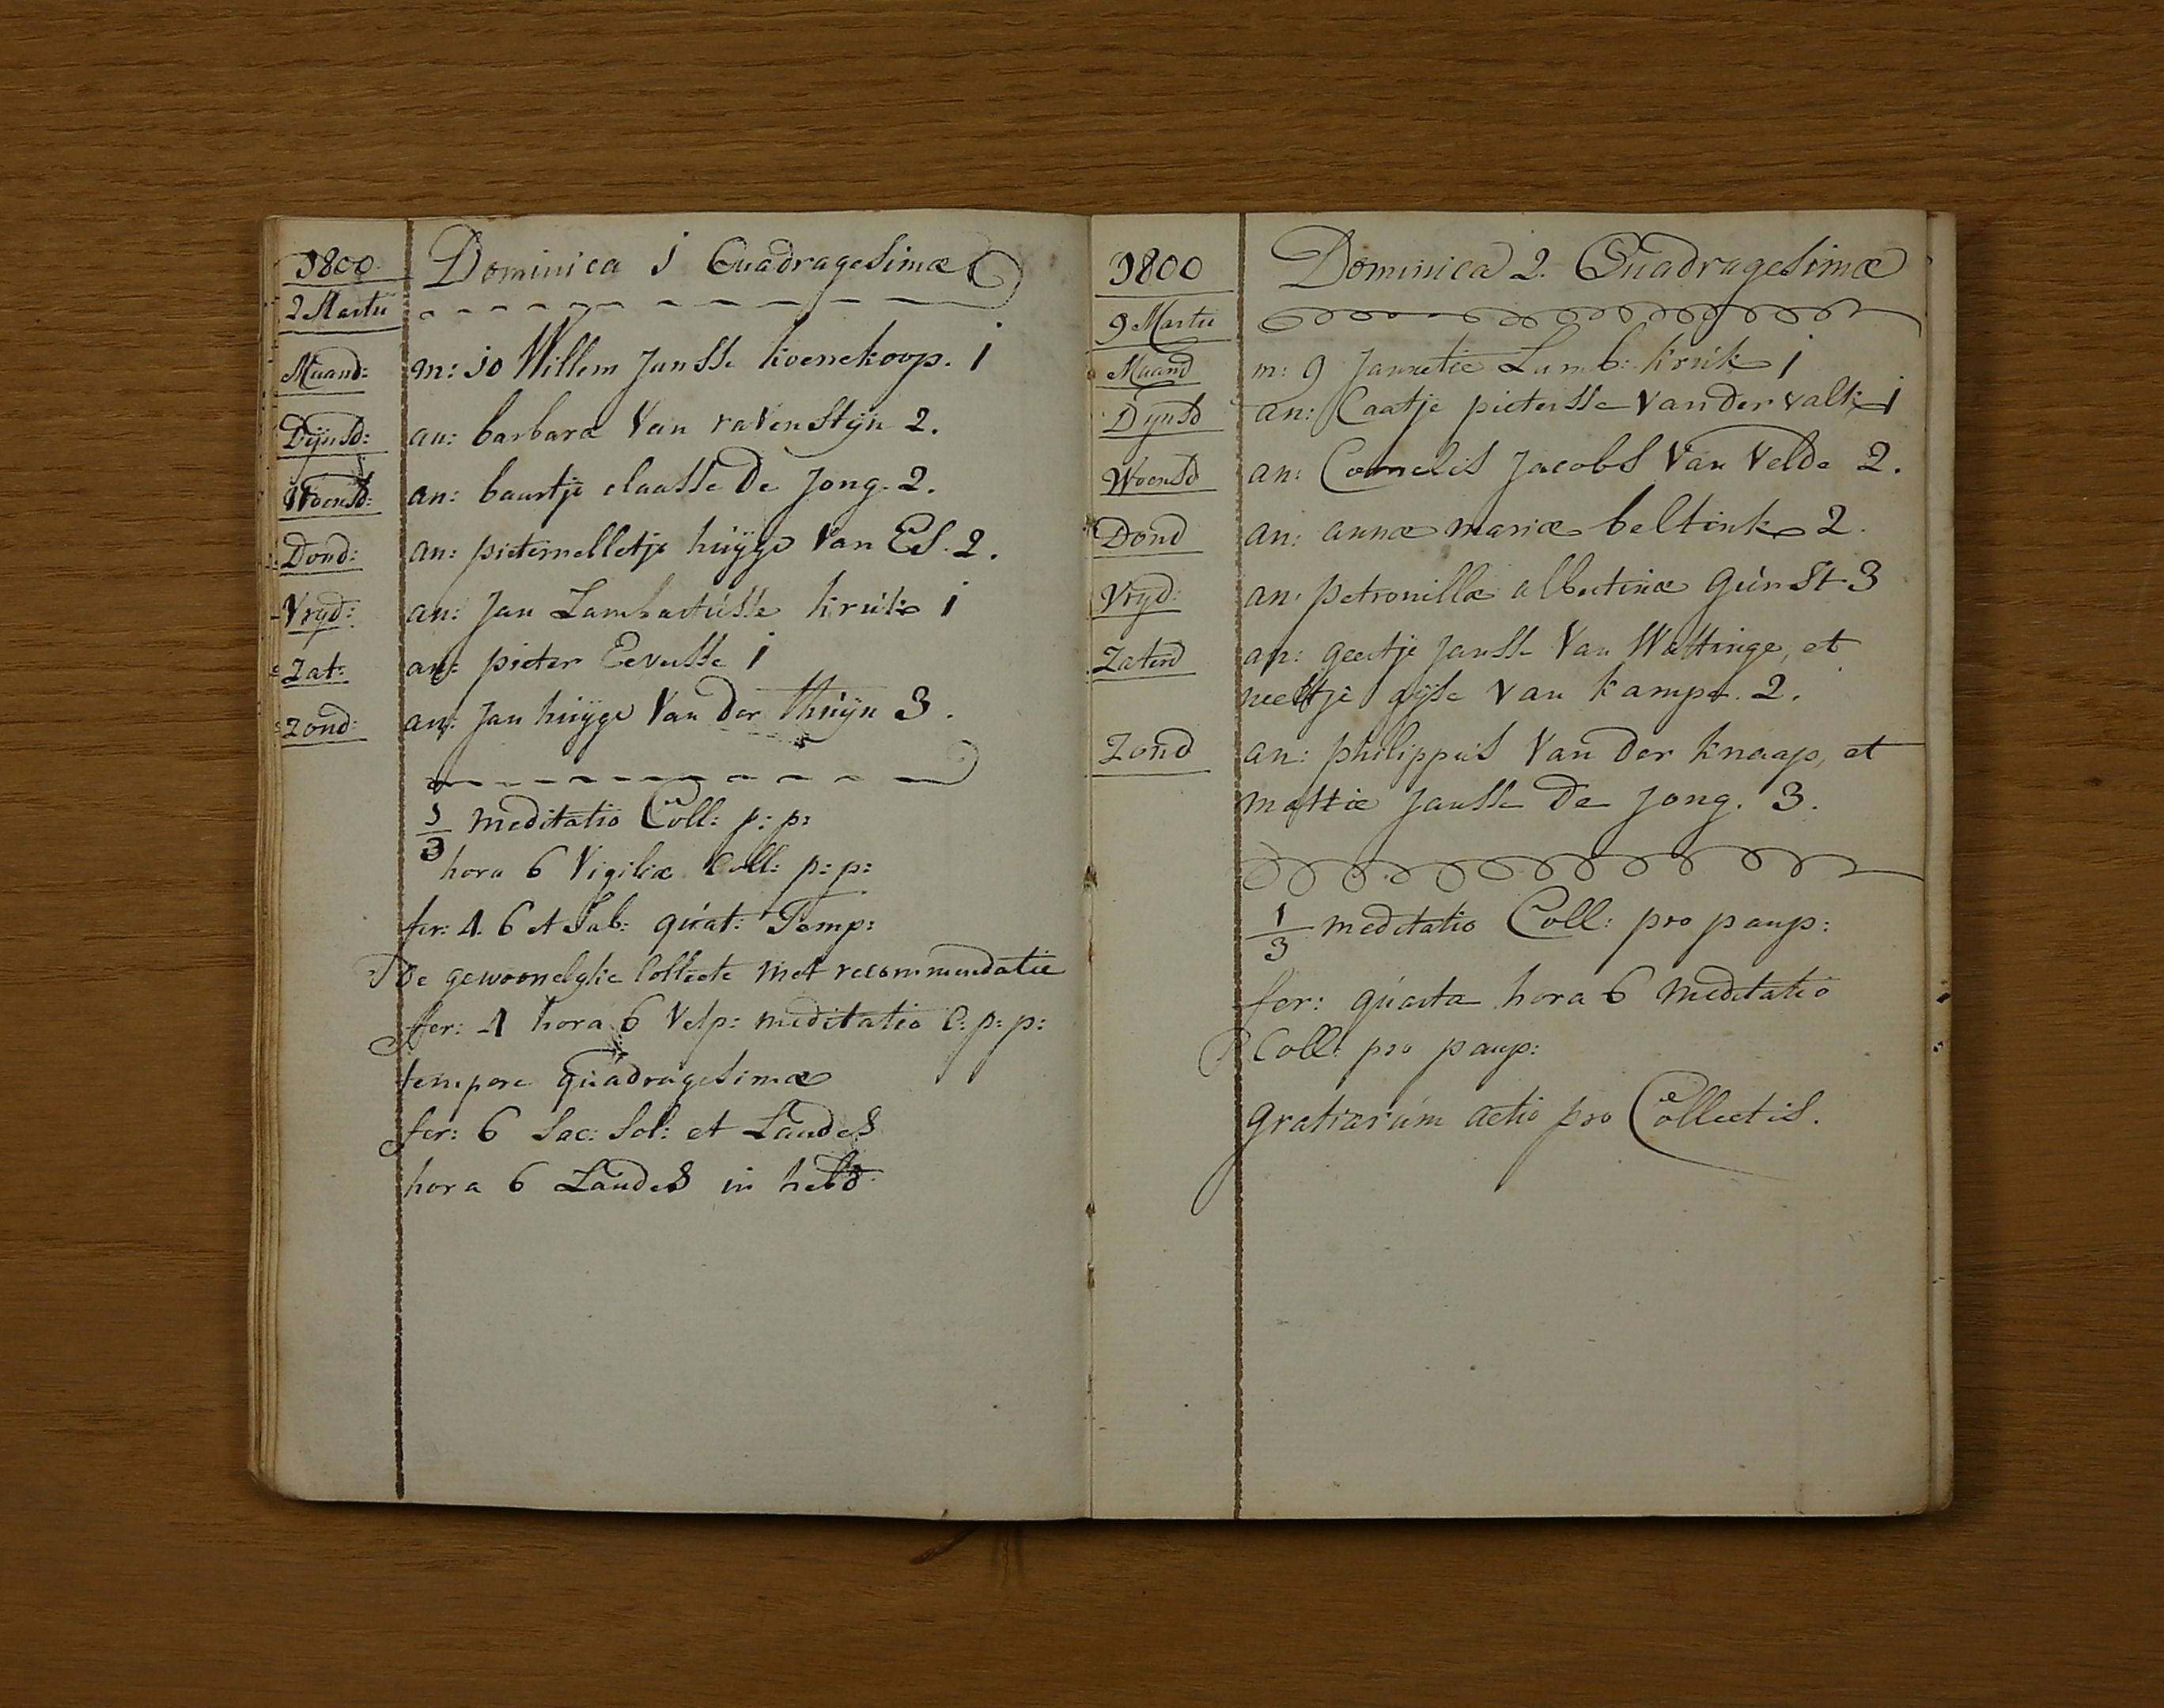 1800 Dominica 1 Quadragesimæ
2 Martii
Maand: m: 10 Willem Jansse koenekoop. 1
Dijnsd: an: barbara Van ravenstijn 2.
Woensd: an: baartje claasse De Jong. 2.
Dond: an: pieternelletje huijge Van Es. 2.
Vryd: an: Jan Lambertusse kruk 1
Zat: an: pieter Eevesse 1
Zond: an: Jan huijge Van Der Thuijn 3.
1/3 meditatio Coll: p: p:
hora 6 Vigiliæ Coll: p: p:
fer: 4. 6 et Sab: quat: Temp:
De gewoonelyke Collecte met recommendatie
fer: 4 hora 6 Vesp: meditatio C: p: p:
tempore quadragesimæ
fer: 6 Sac: Sol: et Laudes
hora 6 Laudes in hebd:
1800 Dominica 2. Quadragesimæ
9 Martii
Maand m: 9 Jannetie Lamb: kruk 1
Dynsd an: Caatje pietersse Van der valk 1
Woensd an: Cornelis Jacobs Van Velde 2.
Dond an: annæ mariæ beltink 2.
Vryd: an: petronillæ albertinæ Gunst 3
Zaterd an: geertje Jansse Van Wattinge, et
neeltje gijse Van kampe. 2.
Zond an: philippus Van Der knaap, et
mattie Jansse De Jong. 3.
1/3 meditatio Coll: pro paup:
fer: quarta hora 6 meditatio
Coll: pro paup:
gratiarum actio pro Collectis.